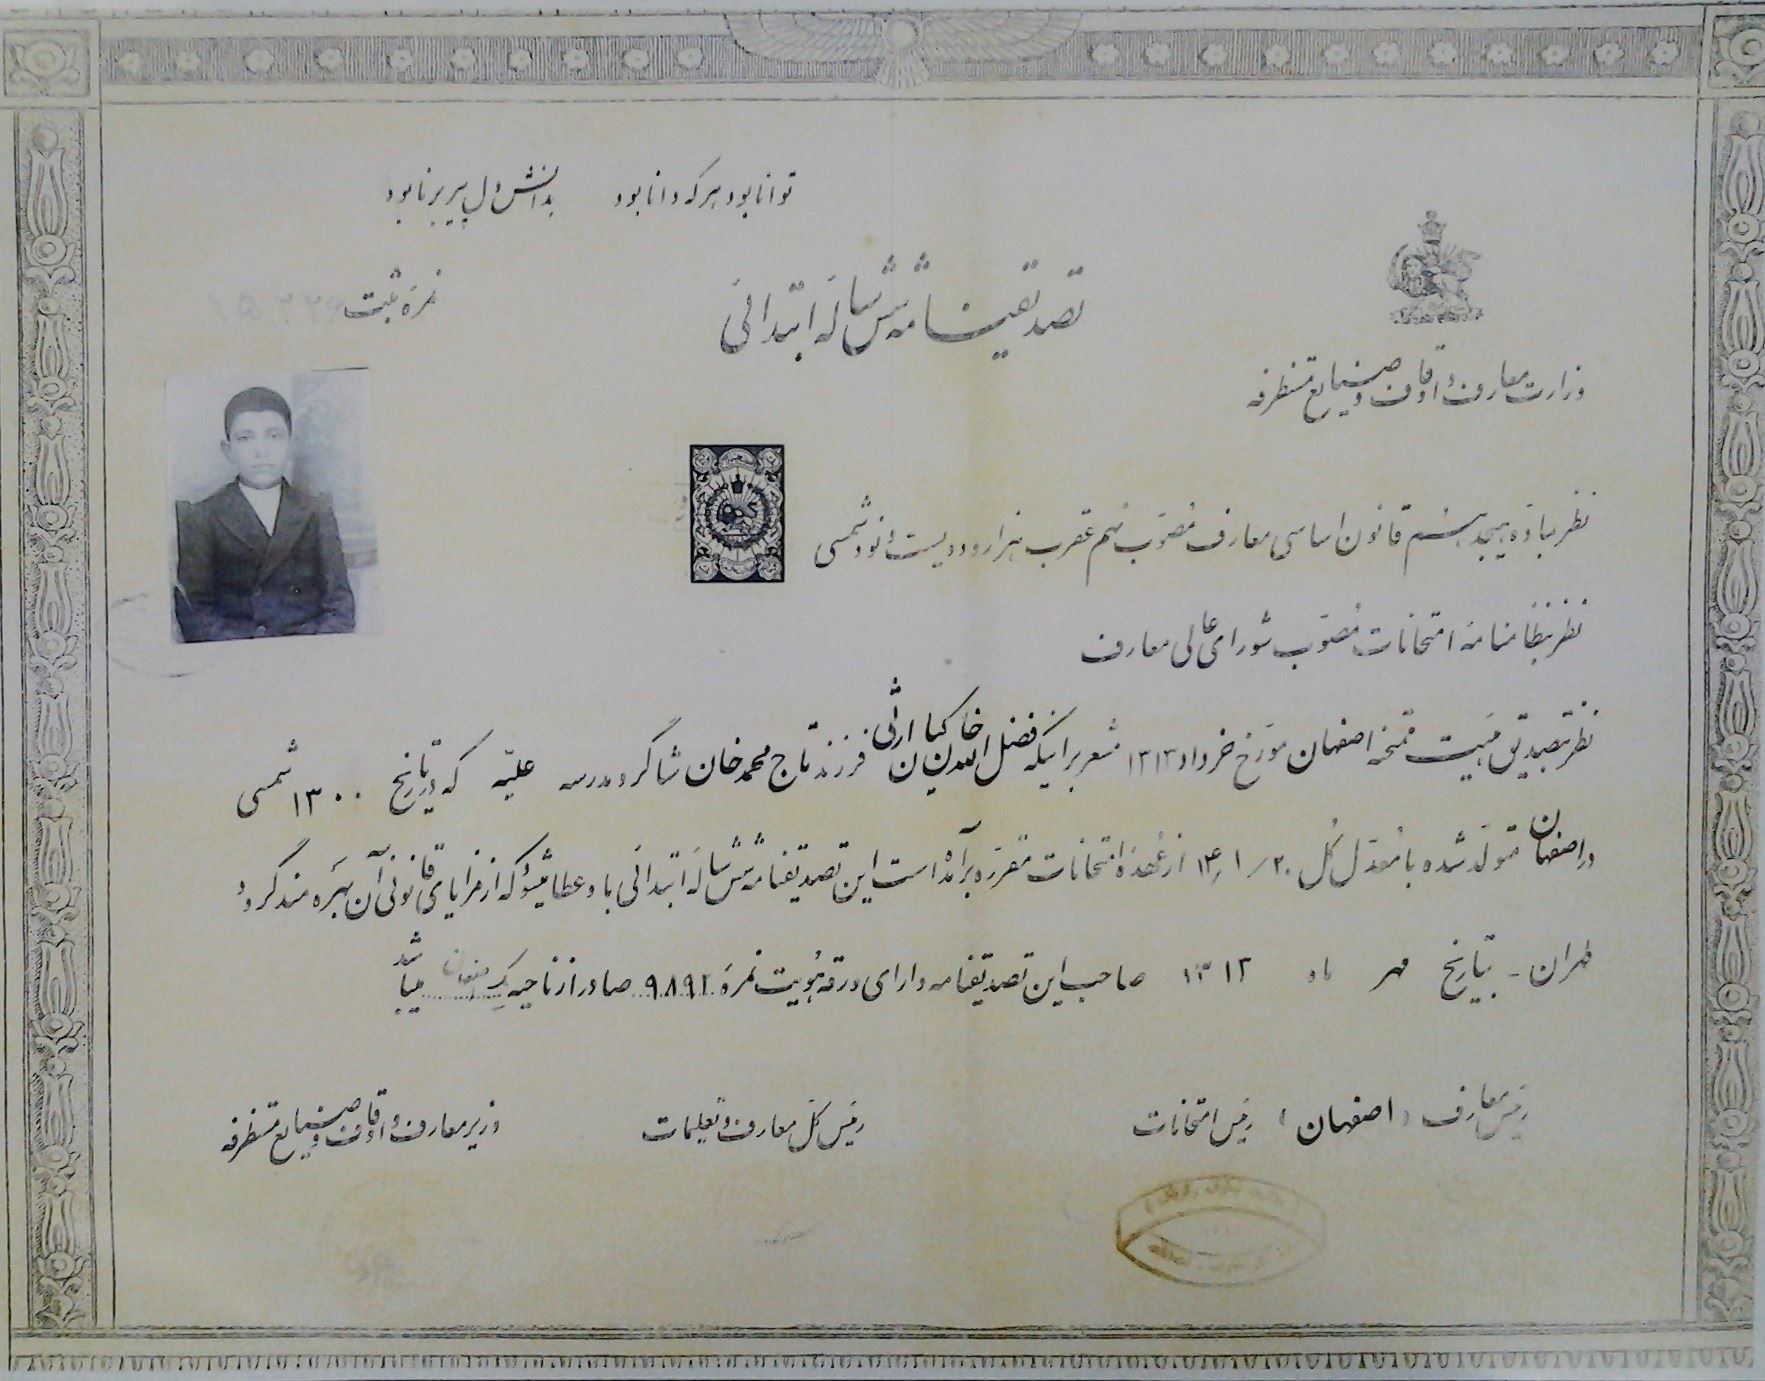 توانا بود هر که دانا بود بدانش دل پیر برنا بود
نمره ثبت
تصدیقنامه شش ساله ابتدائی
وزارت معارف و اوقاف و صنایع مستظرفه
نظر بماده هیجدهم قانون اساسی معارف مصوب نهم عقرب هزار و دویست و نود شمسی
نظر بنظامنامه امتحانات مصوب شورای عالی معارف
نظر بتصدیق هیئت ممتحنه اصفهان مورخ خرداد ۱۳۱۳ مشعر بر اینکه فضل الله خان فرزند تاج محمد خان شاگرد مدرسه علیه که در تاریخ ۱۳۰۰ شمسی
در اصفهان متولد شده با معدل کل از عهده امتحانات مقرره برآمده است این تصدیقنامه شش ساله ابتدائی باو عطا میشود که از مزایای قانونی آن بهره مند گردد
طهران - بتاریخ مهر ماه ۱۳۱۳ صاحب این تصدیقنامه دارای ورقه هویت نمره ۹۸۹۲ صادر از ناحیه یک میباشد
رئیس معارف (اصفهان) رئیس امتحانات رئیس کل معارف و تعلیمات وزیر معارف و اوقاف و صنایع مستظرفه